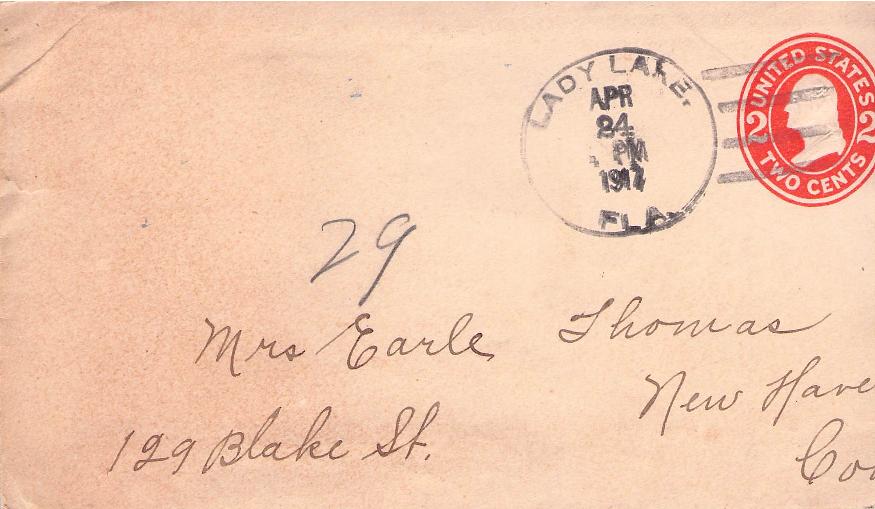 LADY LAKE.
APR
24
PM
1917
FLA.
UNITED STATES
2 2
TWO CENTS
29
Mrs Earle Thomas
New Have
129 Blake St.
Co